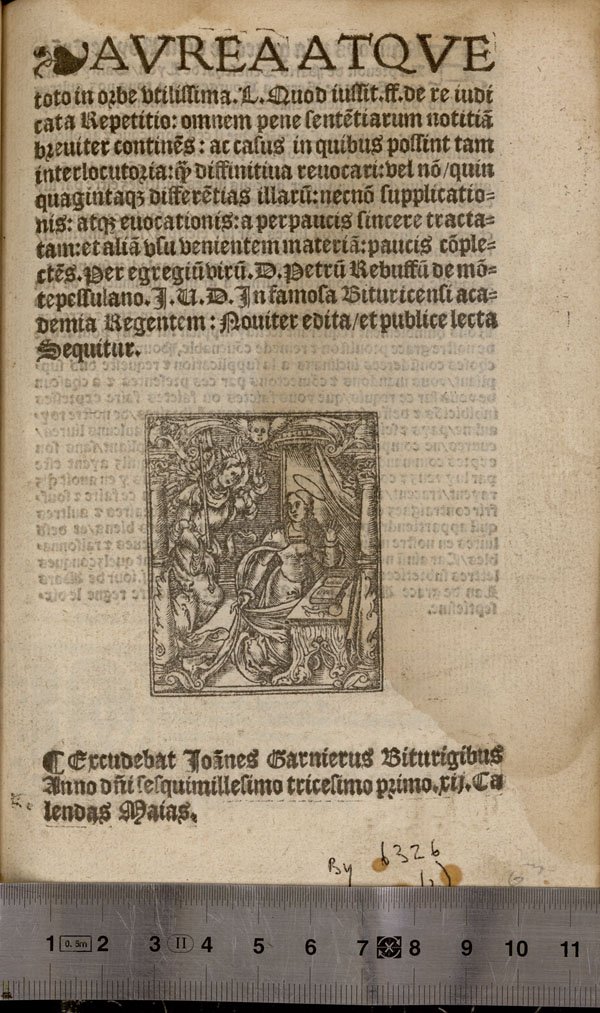 AVREA ATQVE
toto in orbe vtilissima. L. Quod iussit. ff. de re iudi
cata Repetitio: omnem pene sentẽtiarum notitiã
breuiter continẽs: ac casus in quibus possint tam
interlocutoria: ꝙ̃ diffinitiua reuocari: vel nõ/quin
quagintaqꝫ differẽtias illarũ: necnõ supplicatio⸗
nis: atqꝫ euocationis: a perpaucis sincere tracta⸗
tam: et aliã vsu venientem materiã: paucis cõple⸗
ctẽs. Per egregiũ virũ. D. Petrũ Rebuffũ de mõ⸗
tepessulano. J. U. D. In famosa Bituricensi aca⸗
demia Regentem: Nouiter edita/et publice lecta
Sequitur.
¶ Excudebat Joãnes Garnierus Biturigibus
Anno dñi sesquimillesimo tricesimo primo. xij. Ca
lendas Maias.
By 6326
1 0.5m 2 3 II 4 5 6 7 8 9 10 11